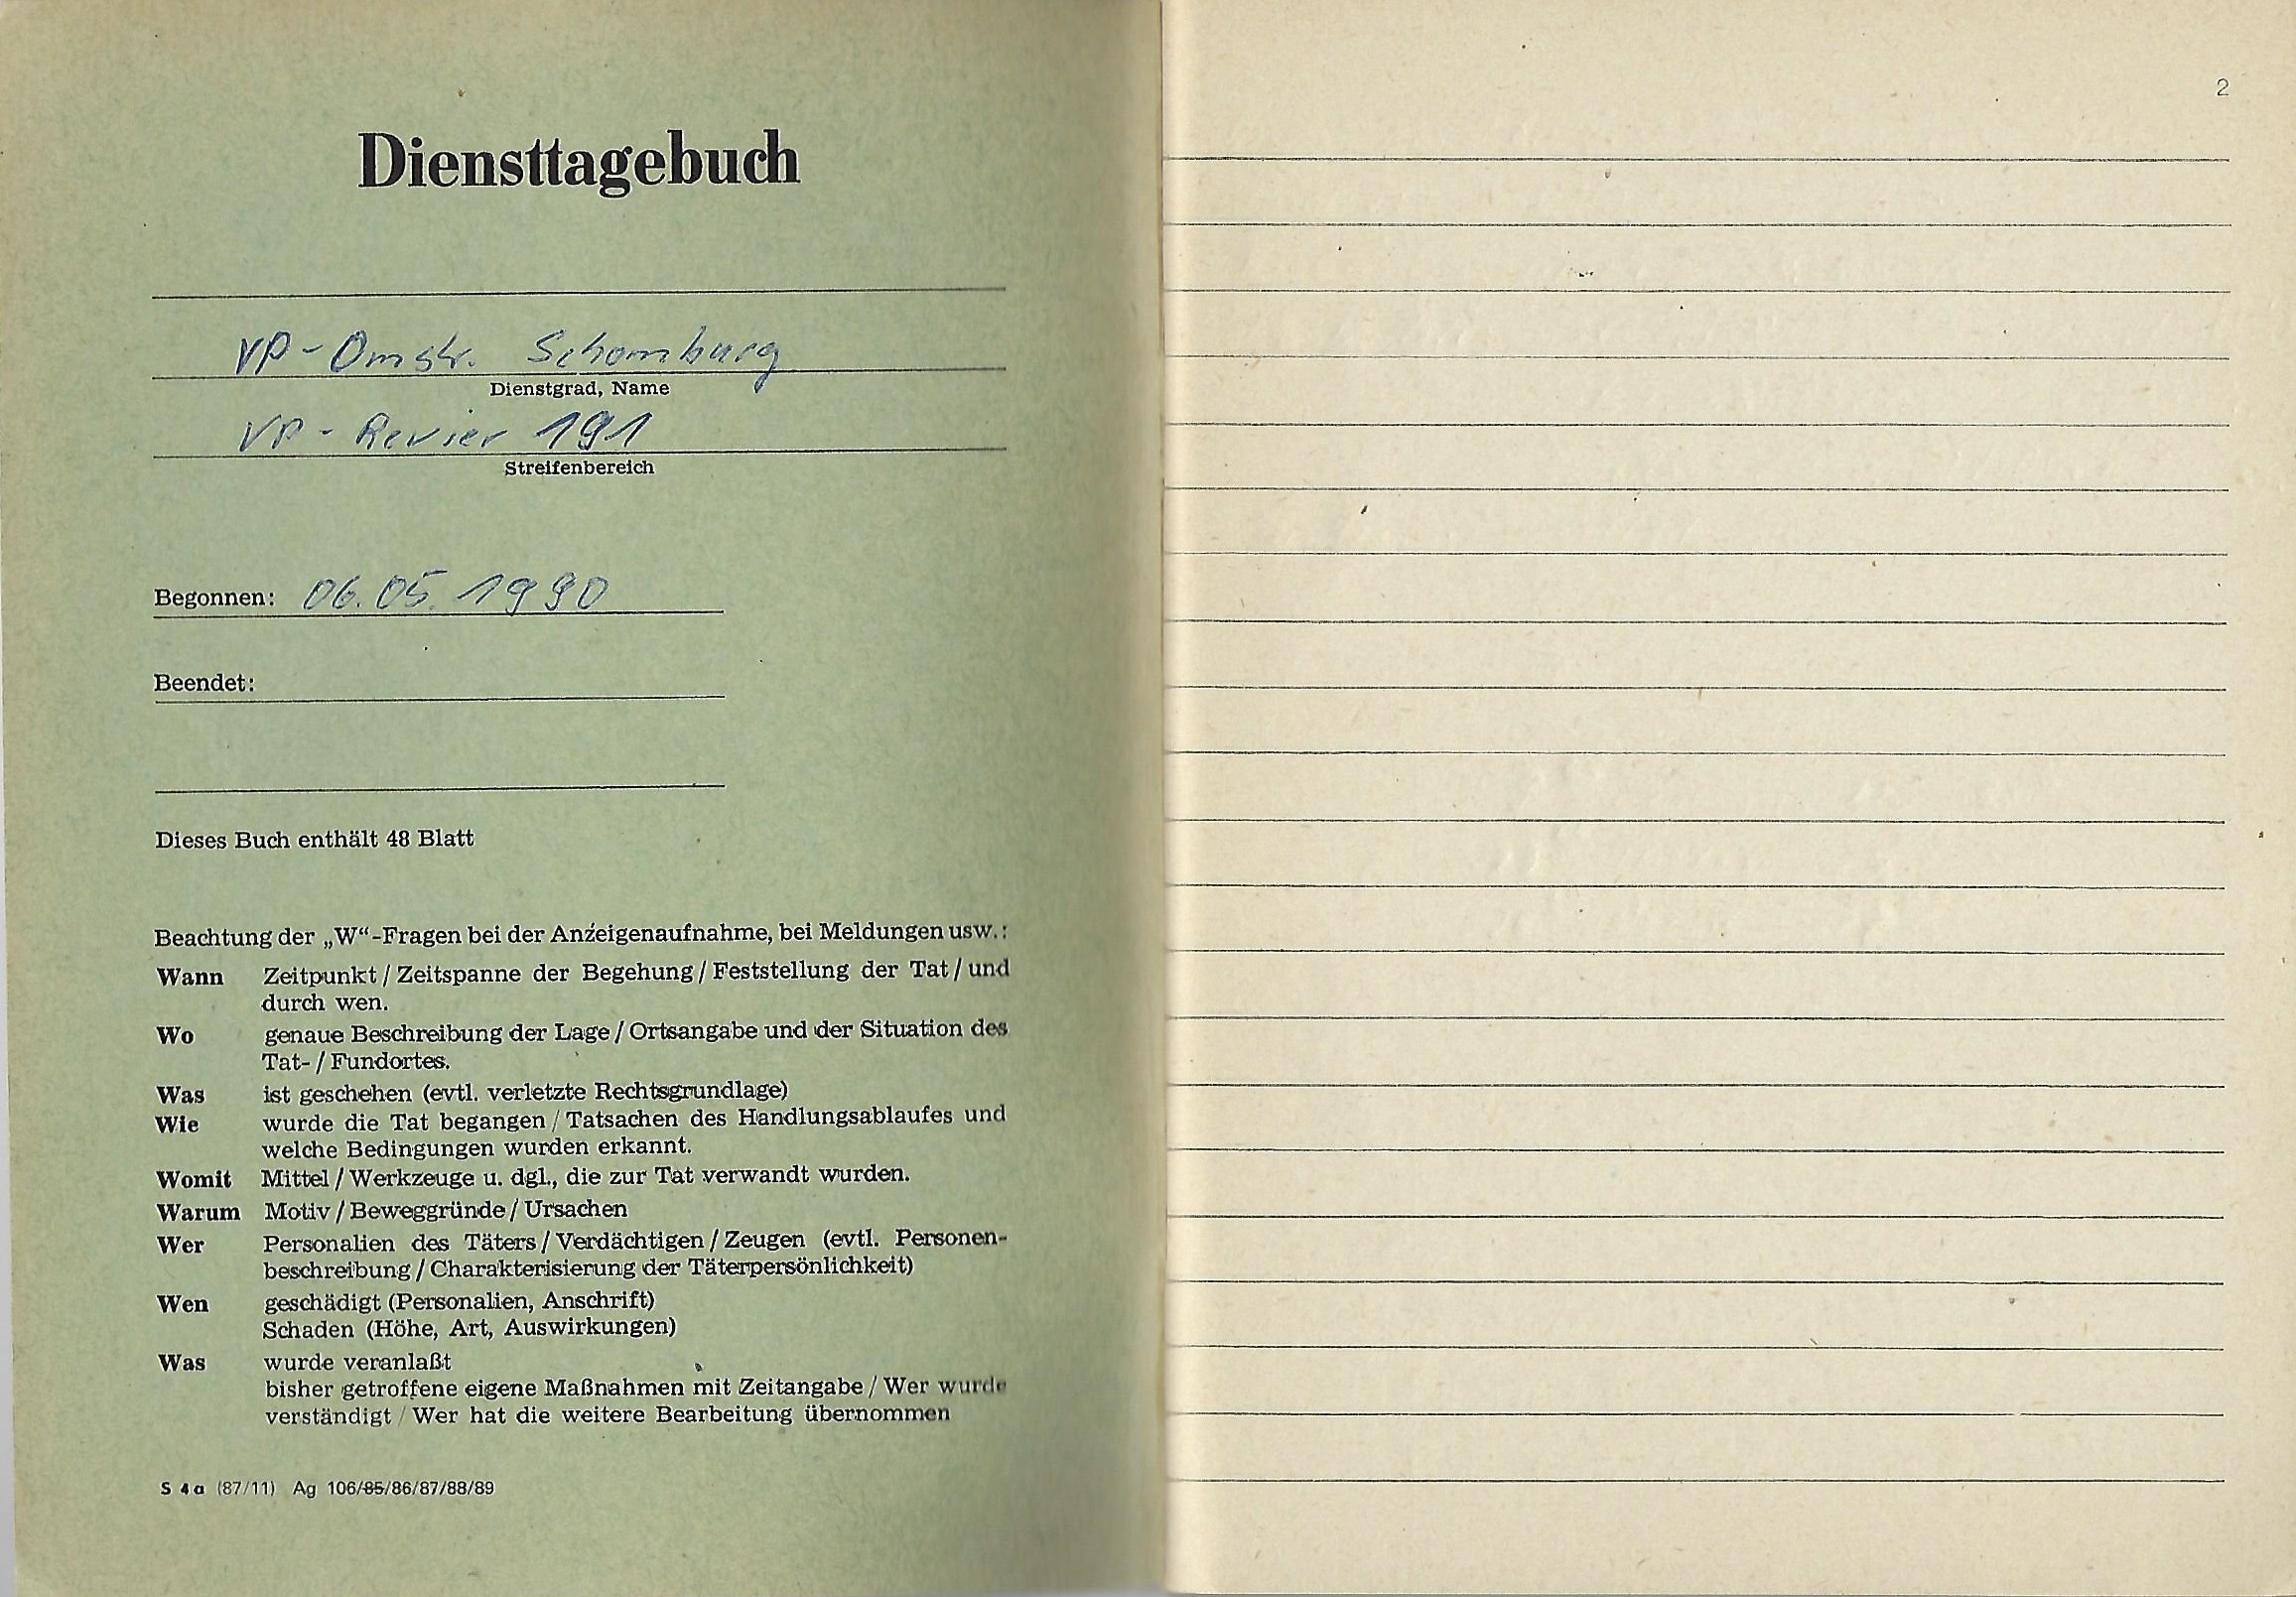 Diensttagebuch
VP-Omstr. Schomburg
Dienstgrad, Name
VP-Revier 191
Streifenbereich
Begonnen: 06.05.1990
Beendet:
Dieses Buch enthält 48 Blatt
Beachtung der „W“-Fragen bei der Anzeigenaufnahme, bei Meldungen usw.:
Wann Zeitpunkt / Zeitspanne der Begehung / Feststellung der Tat / und
durch wen.
Wo genaue Beschreibung der Lage / Ortsangabe und der Situation des
Tat- / Fundortes.
Was ist geschehen (evtl. verletzte Rechtsgrundlage)
Wie wurde die Tat begangen / Tatsachen des Handlungsablaufes und
welche Bedingungen wurden erkannt.
Womit Mittel / Werkzeuge u. dgl., die zur Tat verwandt wurden.
Warum Motiv / Beweggründe / Ursachen
Wer Personalien des Täters / Verdächtigen / Zeugen (evtl. Personen-
beschreibung / Charakterisierung der Täterpersönlichkeit)
Wen geschädigt (Personalien, Anschrift)
Schaden (Höhe, Art, Auswirkungen)
Was wurde veranlaßt
bisher getroffene eigene Maßnahmen mit Zeitangabe / Wer wurde
verständigt / Wer hat die weitere Bearbeitung übernommen
S 4a (87/11) Ag 106/85/86/87/88/89
2